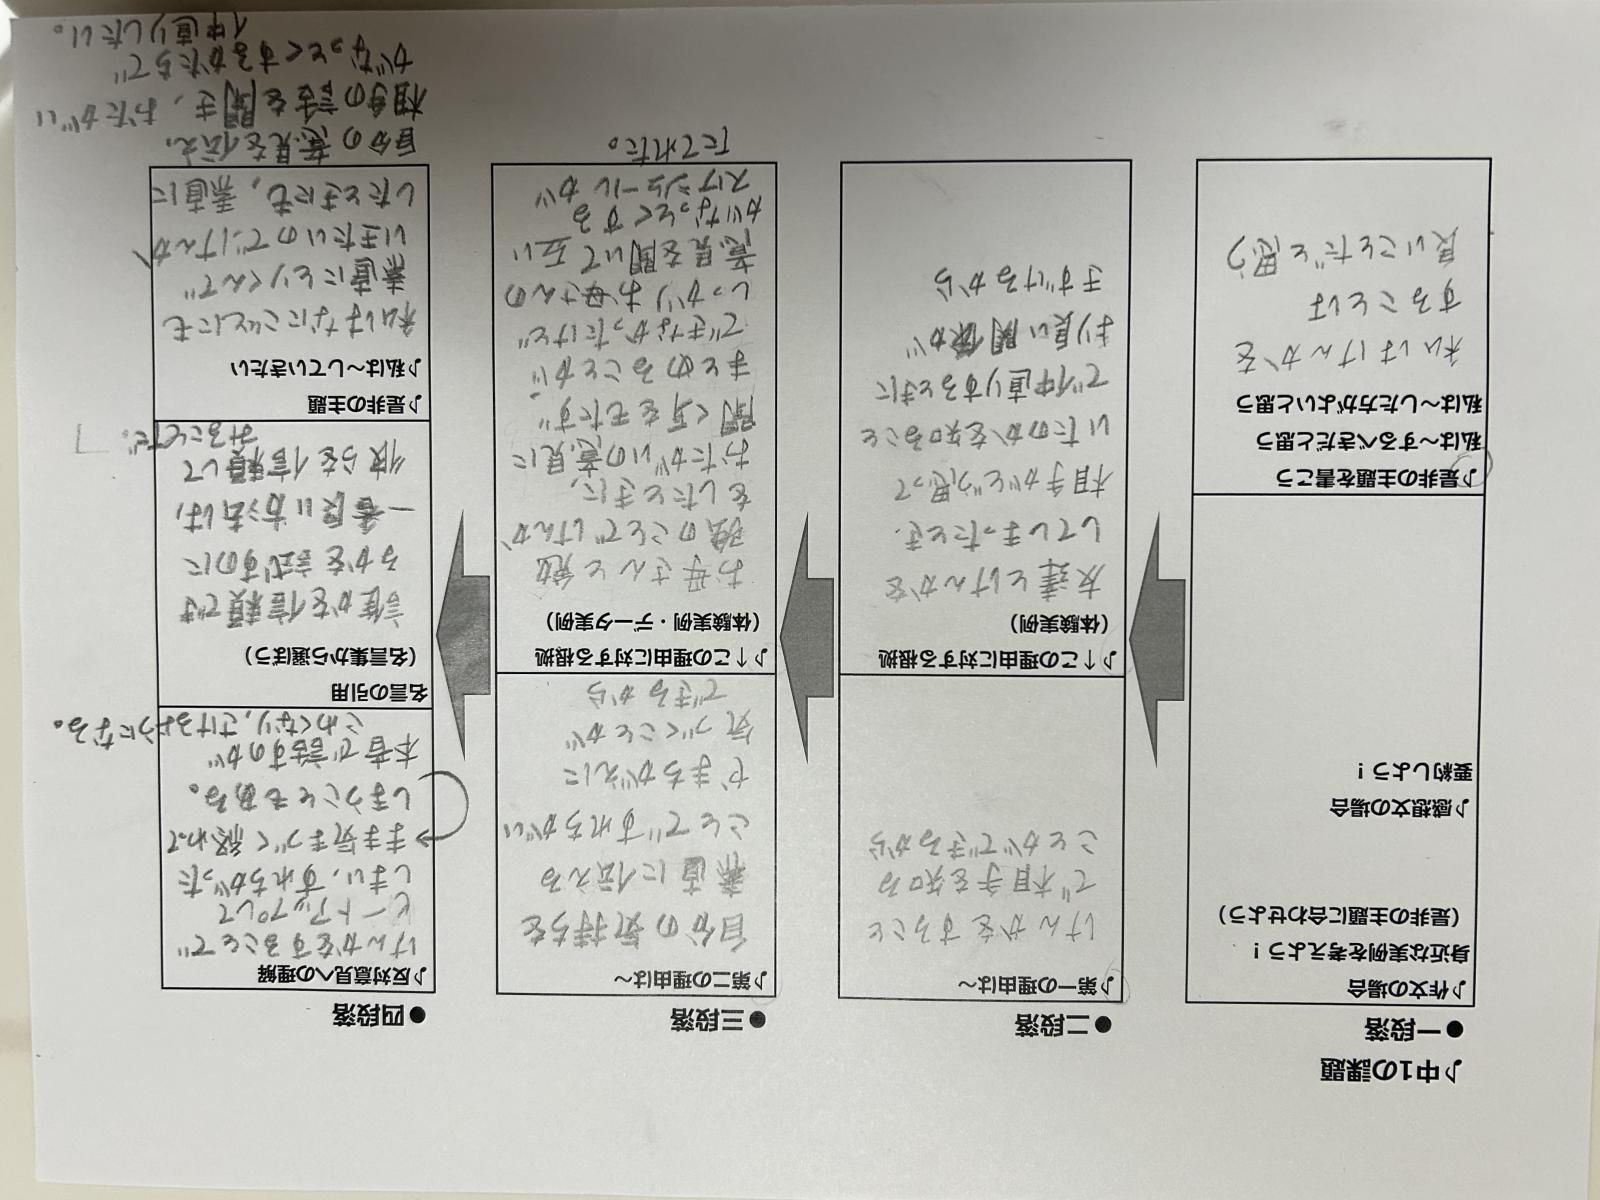 ♪中1の課題
●一段落
♪作文の場合
身近な実例を考えよう！
(是非の主題に合わせよう)
♪感想文の場合
要約しよう！
♪是非の主題を書こう
私は～するべきだと思う
私は～した方がよいと思う
私はけんかを
することは
良いことだと思う
●二段落
♪第一の理由は～
けんかをすること
で相手を知る
ことができるから
♪↑この理由に対する根拠
(体験実例)
友達とけんかを
してしまったとき、
相手がどう思って
いたのかを知ること
で仲直りするときに
より良い関係が
きずけるから
●三段落
♪第二の理由は～
自分の気持ちを
素直に伝える
ことですれちがい
やまちがえに
気づくことが
できるから
♪↑この理由に対する根拠
(体験実例・データ実例)
お母さんと勉
強のことでけんか
をしたときに、
おたがいの意見に
聞く気をもたず
まとめることが
できなかったけど
しっかりお母さんの
意見を聞いて互い
がなっとくする
スケジュールが
たてれた。
●四段落
♪反対意見への理解
けんかをすることで
ヒートアップして
しまい、すれちがった
まま気まづく終わって
しまうこともある。
本音で話すのが
こわくなり、さけるようになる。
名言の引用
(名言集から選ぼう)
誰かを信頼でき
るかを試すのに
一番良い方法は、
彼らを信頼して
みることだ。」
♪是非の主題
♪私は～していきたい
私はなにごとにも
素直にとりくんで
いきたいのでけんか
したときにも、素直に
自分の意見を伝え、
相手の話を聞き、おたがい
がなっとくするかたちで
仲直りしたい。